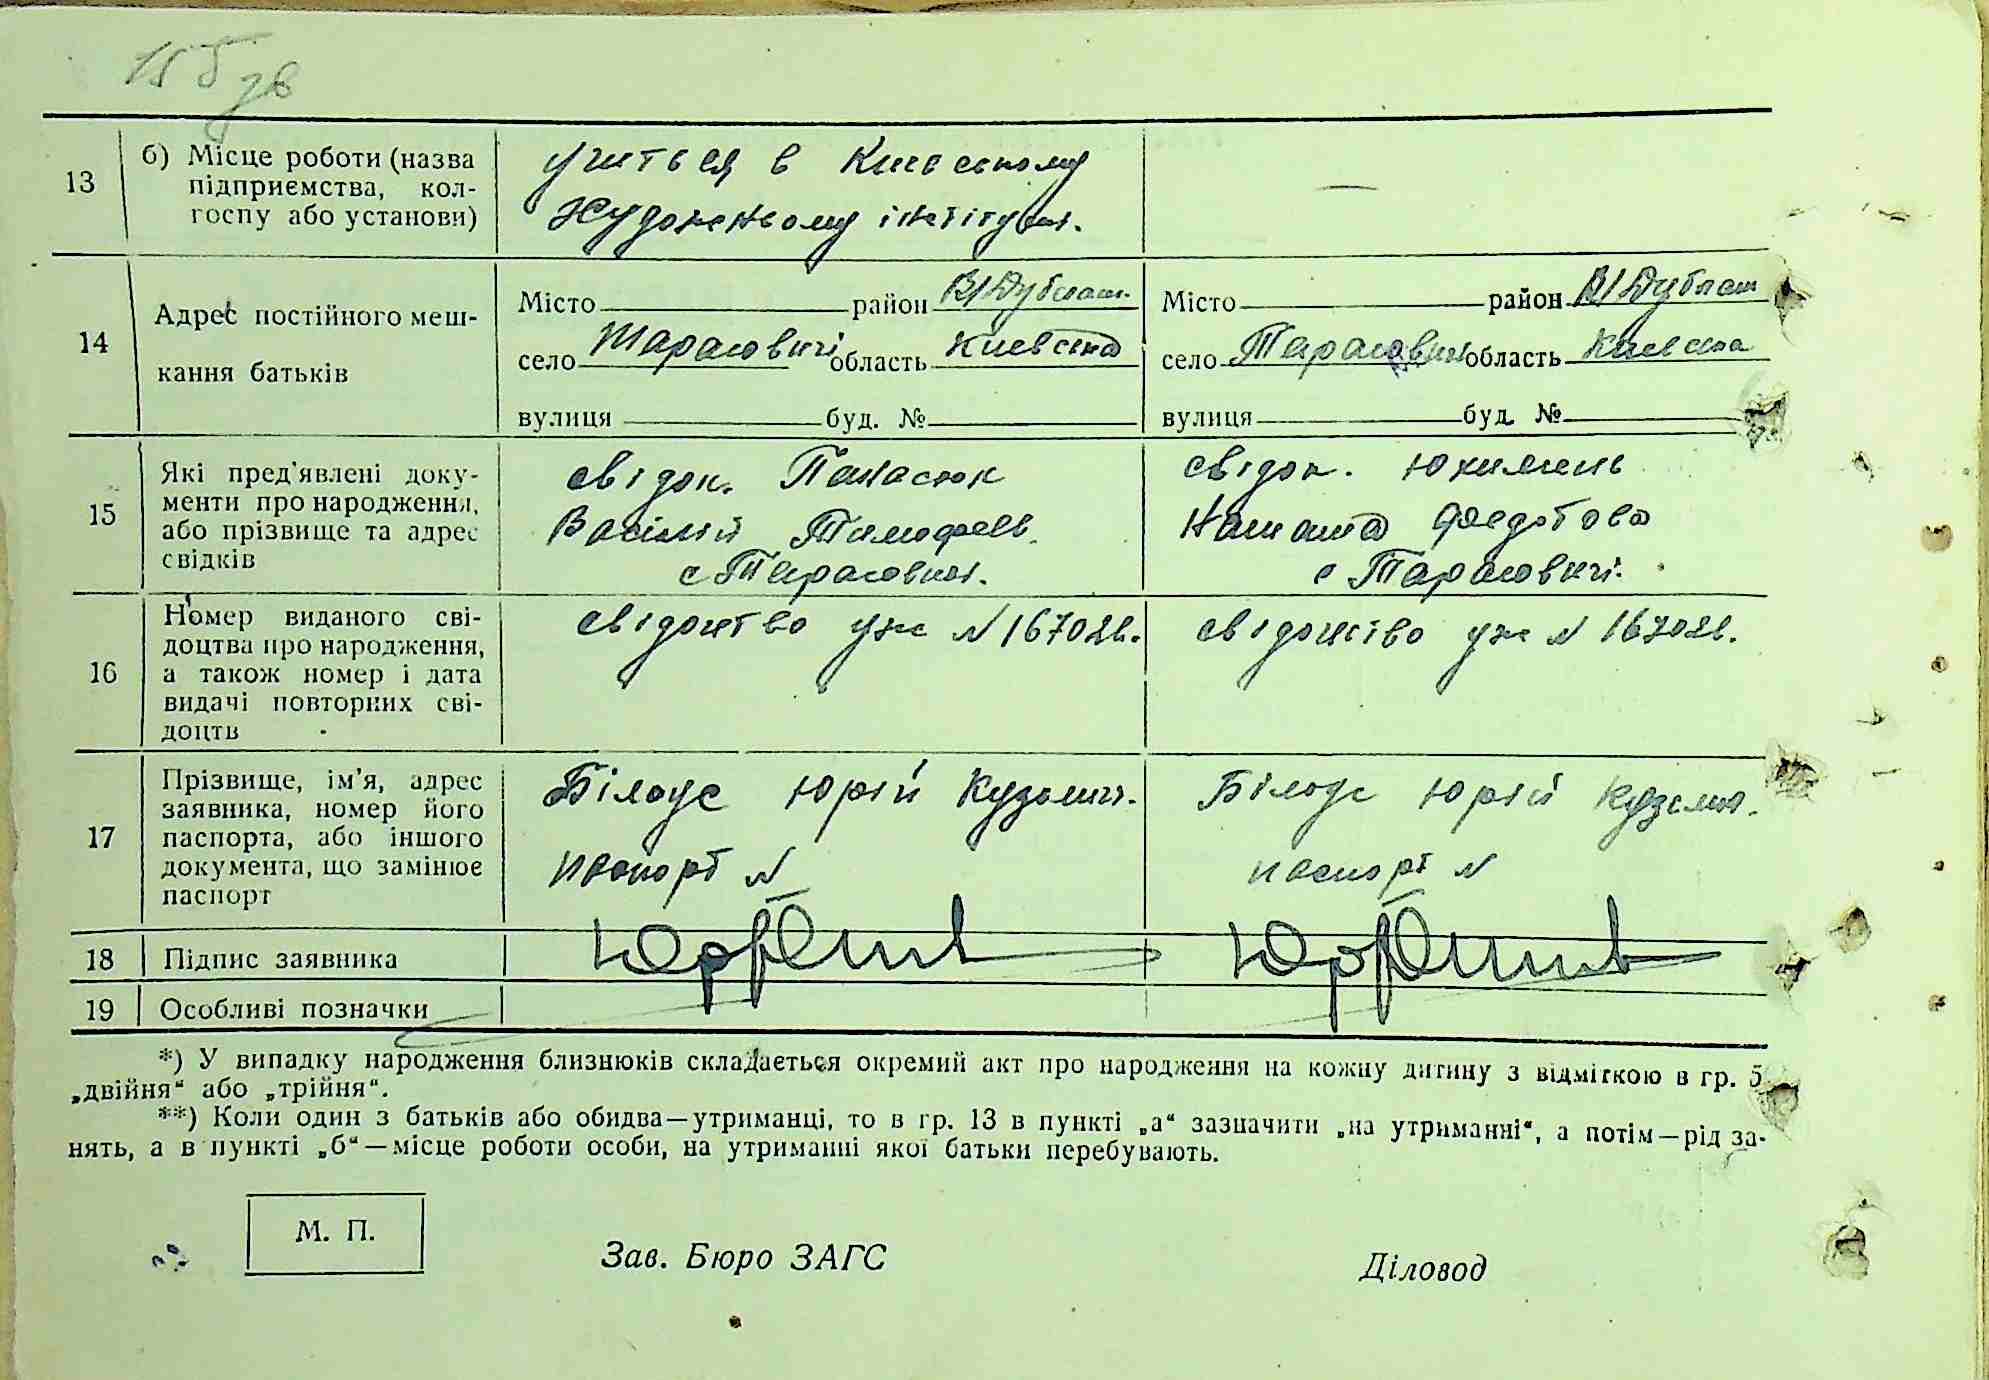 15 б зв
13 б) Місце роботи (назва підприємства, колгоспу або установи)
учиться в Київському
Художньому інституті.
—
14 Адрес постійного мешкання батьків
Місто район В/Дубечан.
село Тарасовичі область Київська
вулиця буд. №
Місто район В/Дубечан
село Тарасовичі область Київська
вулиця буд. №
15 Які пред'явлені документи про народження, або прізвище та адрес свідків
свідок. Панасюк
Василій Тимофеев.
с Тарасовичі.
свідок. Юхимень
Федотова
с Тарасовичі.
16 Номер виданого свідоцтва про народження, а також номер і дата видачі повторних свідоцтв
свідоцтво уже N 167026.
свідоцтво уже N 167026.
17 Прізвище, ім'я, адрес заявника, номер його паспорта, або іншого документа, що замінює паспорт
Білоус Юрій Кузьмич.
паспорт N
Білоус Юрій Кузьмич.
паспорт N
18 Підпис заявника
19 Особливі позначки
*) У випадку народження близнюків складається окремий акт про народження на кожну дитину з відміткою в гр. 5
„двійня“ або „трійня“.
**) Коли один з батьків або обидва—утриманці, то в гр. 13 в пункті „а“ зазначити „на утриманні“, а потім—рід за-
нять, а в пункті „б“—місце роботи особи, на утриманні якої батьки перебувають.
М. П.
Зав. Бюро ЗАГС
Діловод